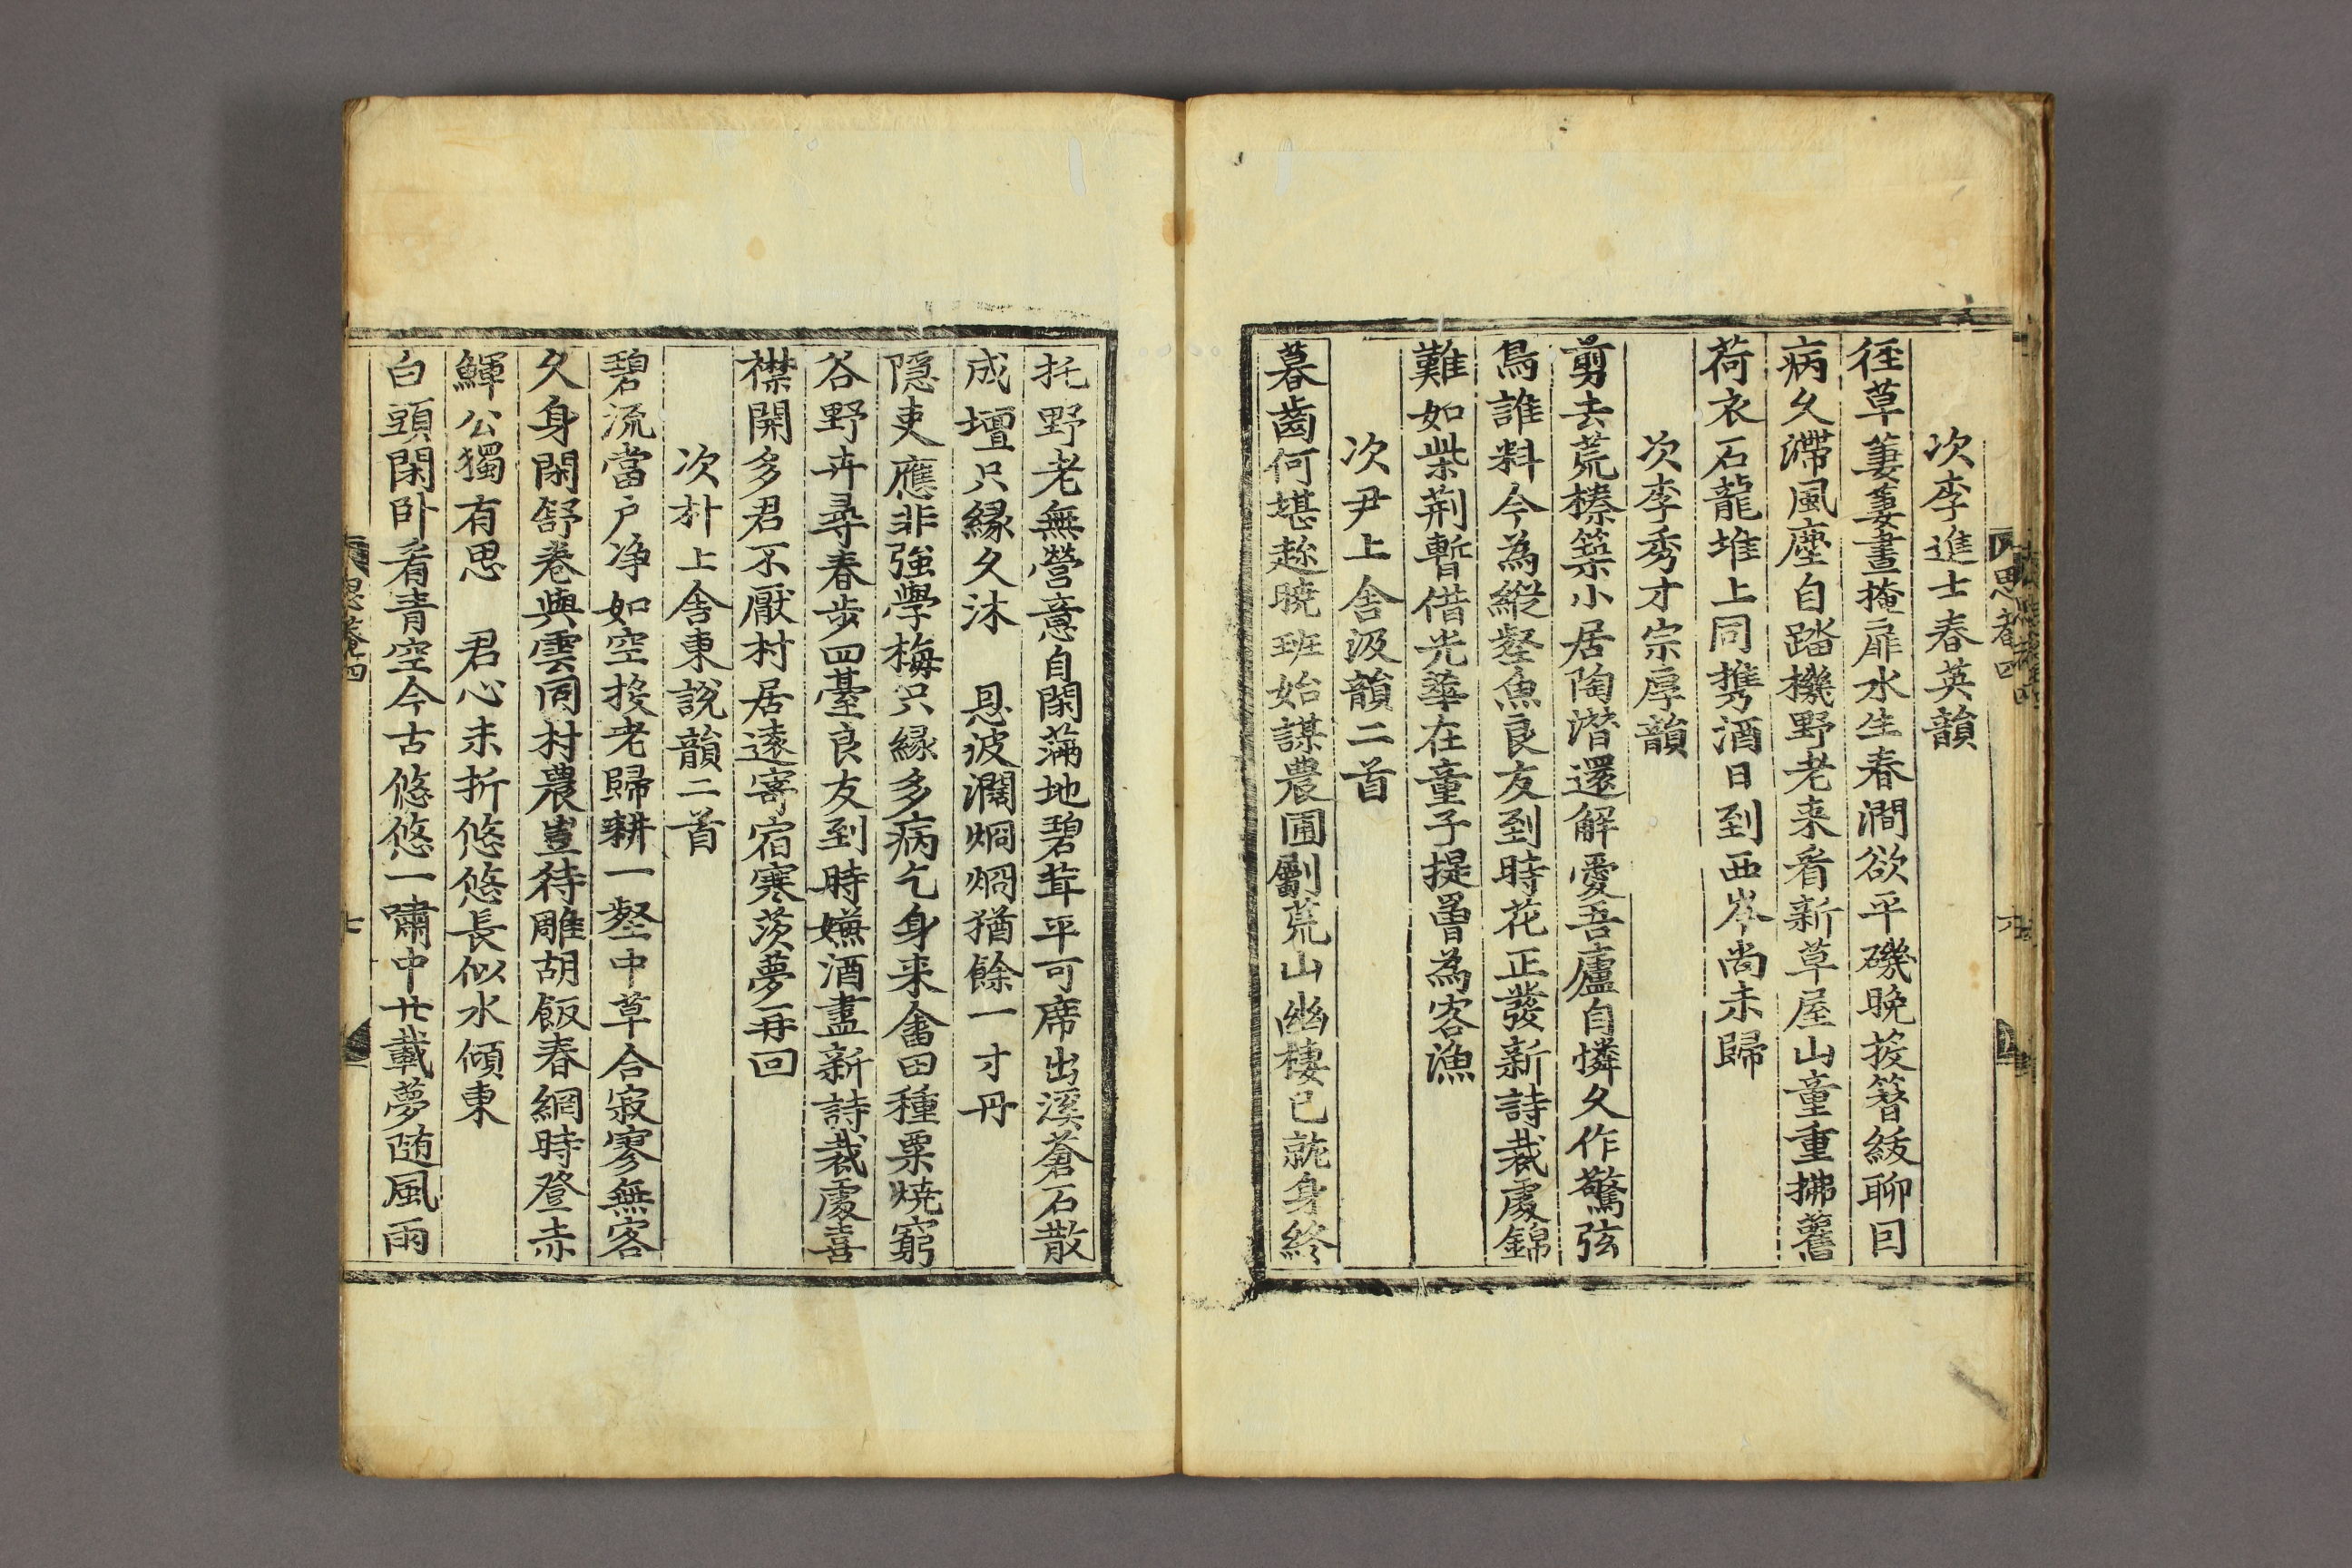 次李進士春英韻
徑草萋萋晝掩扉水生春澗欲平磯晩投簪紱聊回
病久滯風塵自踏機野老来看新草屋山童重拂舊
荷衣石龍堆上同携酒日到西岑尚未歸
次李秀才宗厚韻
剪去荒榛築小居陶潛還解愛吾廬自憐久作驚弦
鳥誰料今為縱壑魚良友到時花正發新詩裁處錦
難如柴荆暫借光華在童子提罾為客漁
次尹上舍汲韻二首
暮齒何堪趂曉班始謀農圃劚荒山幽棲已就身終
托野老無營意自閑蒲地碧茸平可席出溪蒼石散
成壇只緣久沐 恩波濶烱烱猶餘一寸丹
隠吏應非強學梅只緣多病乞身来畬田種粟燒窮
谷野卉尋春步四臺良友到時嫌酒盡新詩裁處喜
襟開多君不厭村居遠寄宿寒茨夢再回
次朴上舍東說韻二首
碧流當户净如空投老歸耕一壑中草合寂寥無客
久身閑舒卷與雲同村農豈待雕胡飯春網時登赤
鯶公獨有思 君心未折悠悠長似水傾東
白頭閑卧看青空今古悠悠一嘯中廿載夢随風雨
思菴四